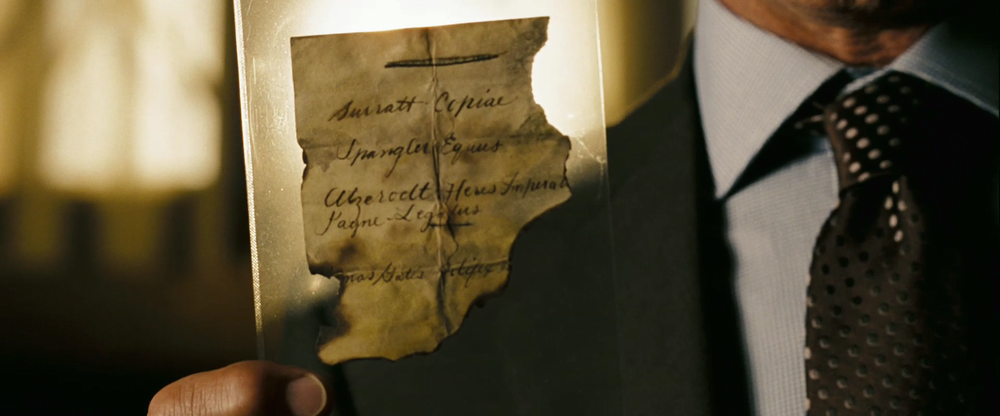 Surratt Copiae
Spangler Equus
Atzerodt Heres Imperat
Payne Legatus
mas Gates